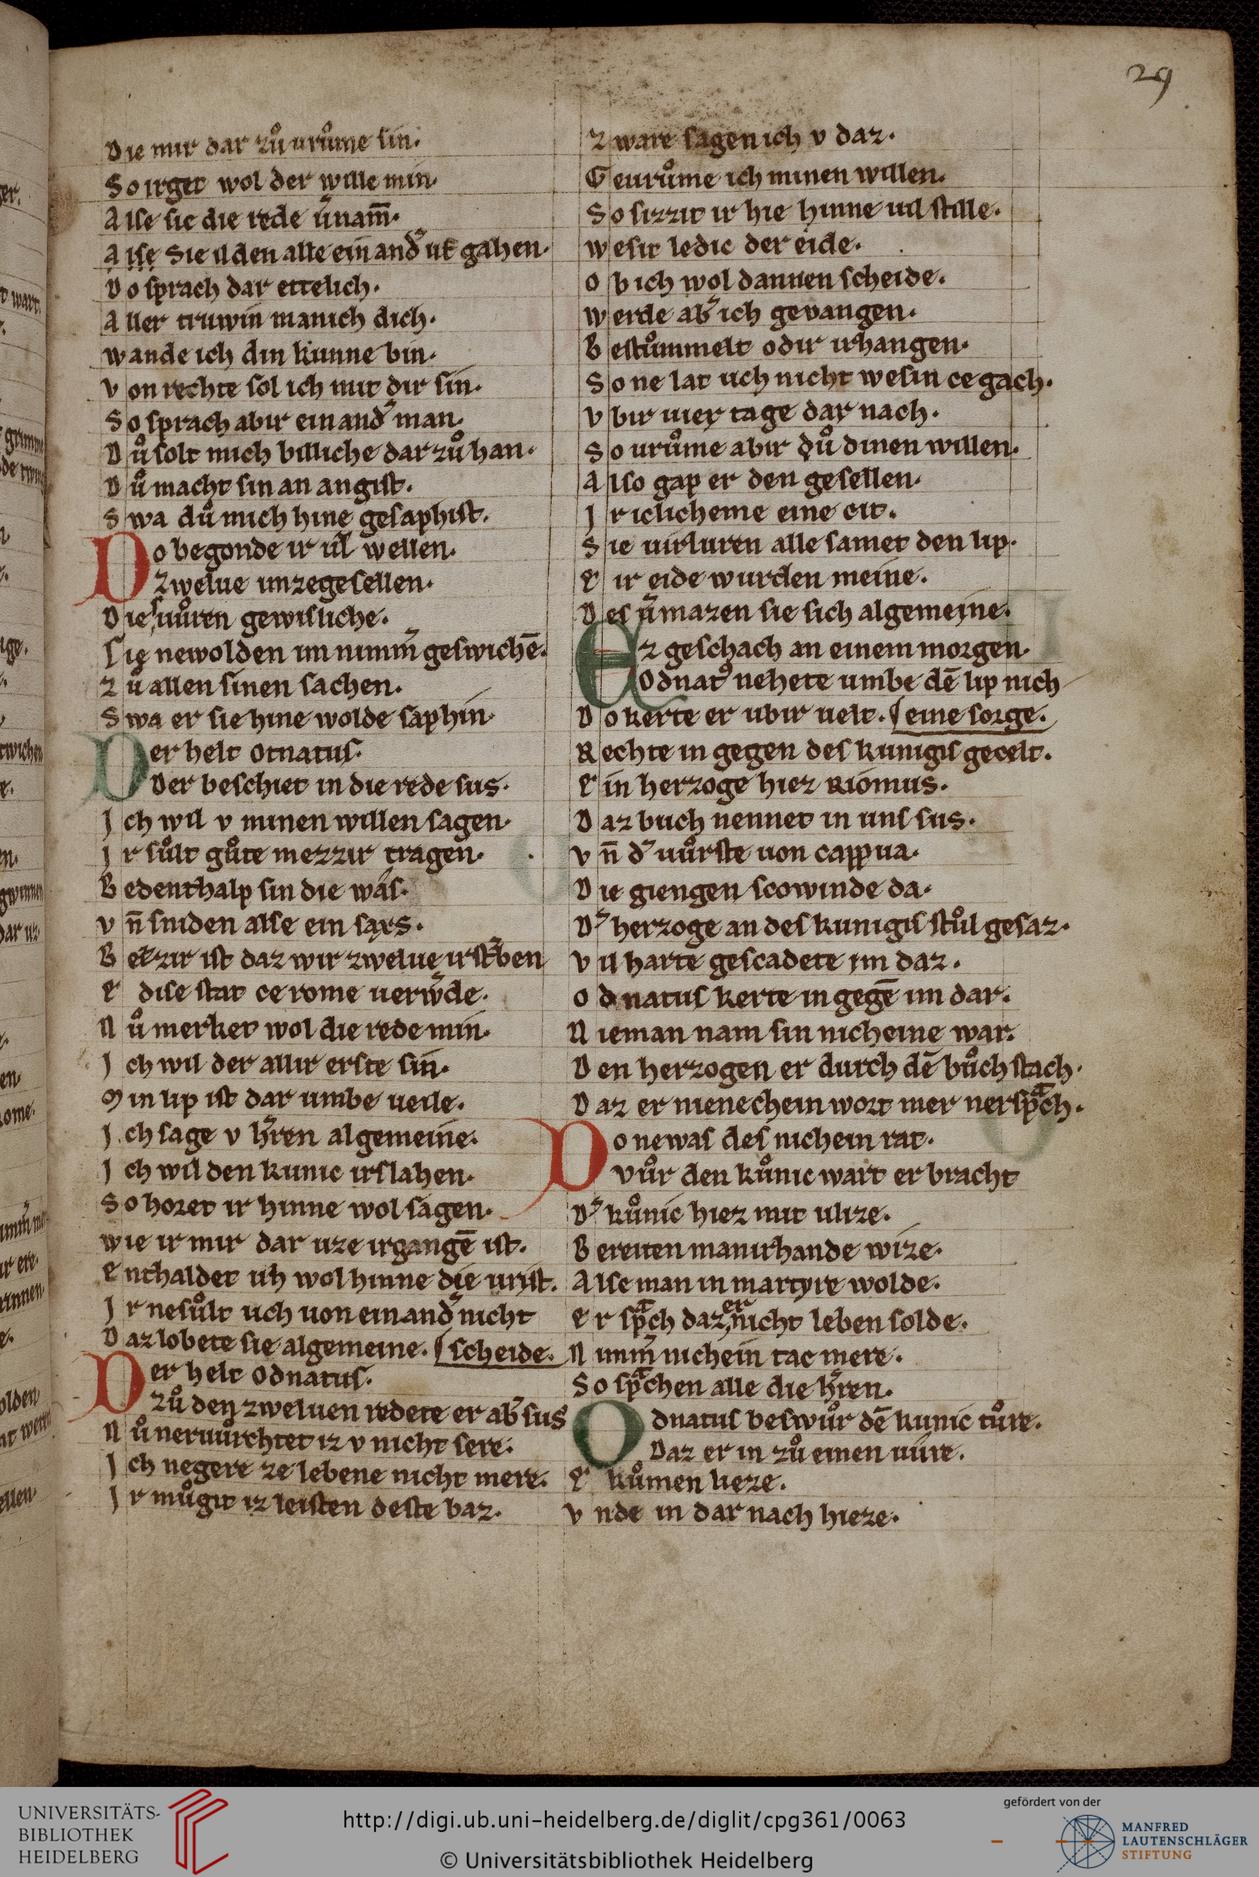 29
Die mir dar zuͦ uruͦme sin·
So irget wol der wille min·
Alse sie die rede v̓nam̄·
Alse Sie ilden alle ein and̓ gahen·
Do sprach dar ettelich·
Aller truwin manich dich·
wande ich din kunne bin·
von rechte sol ich mit dir sin·
So sprach abir ein and̓ man·
Duͦ solt mich billiche dar zuͦ han·
Duͦ macht sin an angist·
Swa duͦ mich hine gesaphist·
Do begonde ir uil wellen·
zwelue unzegesellen·
Die suͦren gewisliche·
Sie newolden im nimm̓ geswichē·
zuͦ allen sinen sachen·
Swa er sie hine wolde saphin·
Der helt otnatus·
Der beschiet in die rede sus·
Ich wil v minen willen sagen·
Ir suͦlt guͦte mezzir tragen·
Bedenthalp sin die was·
vn̄ sniden alse ein saxs·
Bezzir ist daz wir zwelue irst̓ben
E dise stat ce rome uerw̓de·
Nuͦ merket wol die rede min·
Ich wil der allir erste sin·
Min lip ist dar umbe ueile·
Ich sage v h̓ren algemeine·
Ich wil den kunic irslahen·
So horet ir hinne wol sagen·
wie ir mir dar uze irgangē ist·
enthaldet uh wol hinne die urist·
Ir nesuͦlt uch uon ein and̓ nicht
Daz lobete sie algemeine· scheide·
Der helt odnatus·
zuͦ den zweluen redete er ab̓ sus
Nuͦ neruurchtet iz v nicht sere·
Ich negere ze lebene nicht mere·
Ir muͦgit iz leisten deste baz·
zware sagen ich v daz·
Geuruͦme ich minen willen·
So sizzit ir hie hinne uil stille·
wesit ledic der eide·
ob ich wol dannen scheide·
werde ab̓ ich gevangen·
Bestuͦmmelt odir irhangen·
So ne lat uch nicht wesin ce gach·
vbir uier tage dar nach·
So uruͦme abir duͦ dinen willen·
Also gap er den gesellen·
Iriclicheme eine cit·
Sie uirluren alle samet den lip·
E ir eide wurden meine·
Des v̓mazen sie sich algemeine·
Ez geschach an einem morgen·
Odnat̓ nehete umbe dē lip nich
Do kerte er ubir uelt· eine sorge·
Rechte in gegen des kunigis gecelt·
Ein herzoge hiez Riomus·
Daz buch nennet in uns sus·
vn̄ d̓ uuͦrste uon cappua·
Die giengen scowinde da·
D̓ herzoge an des kunigis stuͦl gesaz·
vil harte gescadete im daz·
odnatus kerte in gegē im dar·
Nieman nam sin nicheine war·
Den herzogen er durch dē buͦch stach·
Daz er nienechein wort mer nersp̄ch·
Do newas des nichein rat·
vuͦr den kuͦnic wart er bracht
D̓ kuͦnic hiez mit vlize·
Bereiten manirhande wize·
Alse man in martyre wolde·
er sp̄ch daz er nicht leben solde·
Nimm̓ nichein tac mere·
So sp̄chen alle die h̓ren·
Odnatus beswuͦr dē kunic tuͦre·
Daz er in zuͦ einen uiure·
E kuͦmen lieze·
vnde in dar nach hieze·
UNIVERSITÄTS-
BIBLIOTHEK
HEIDELBERG
http://digi.ub.uni-heidelberg.de/diglit/cpg361/0063
© Universitätsbibliothek Heidelberg
gefördert von der
MANFRED
LAUTENSCHLÄGER
STIFTUNG